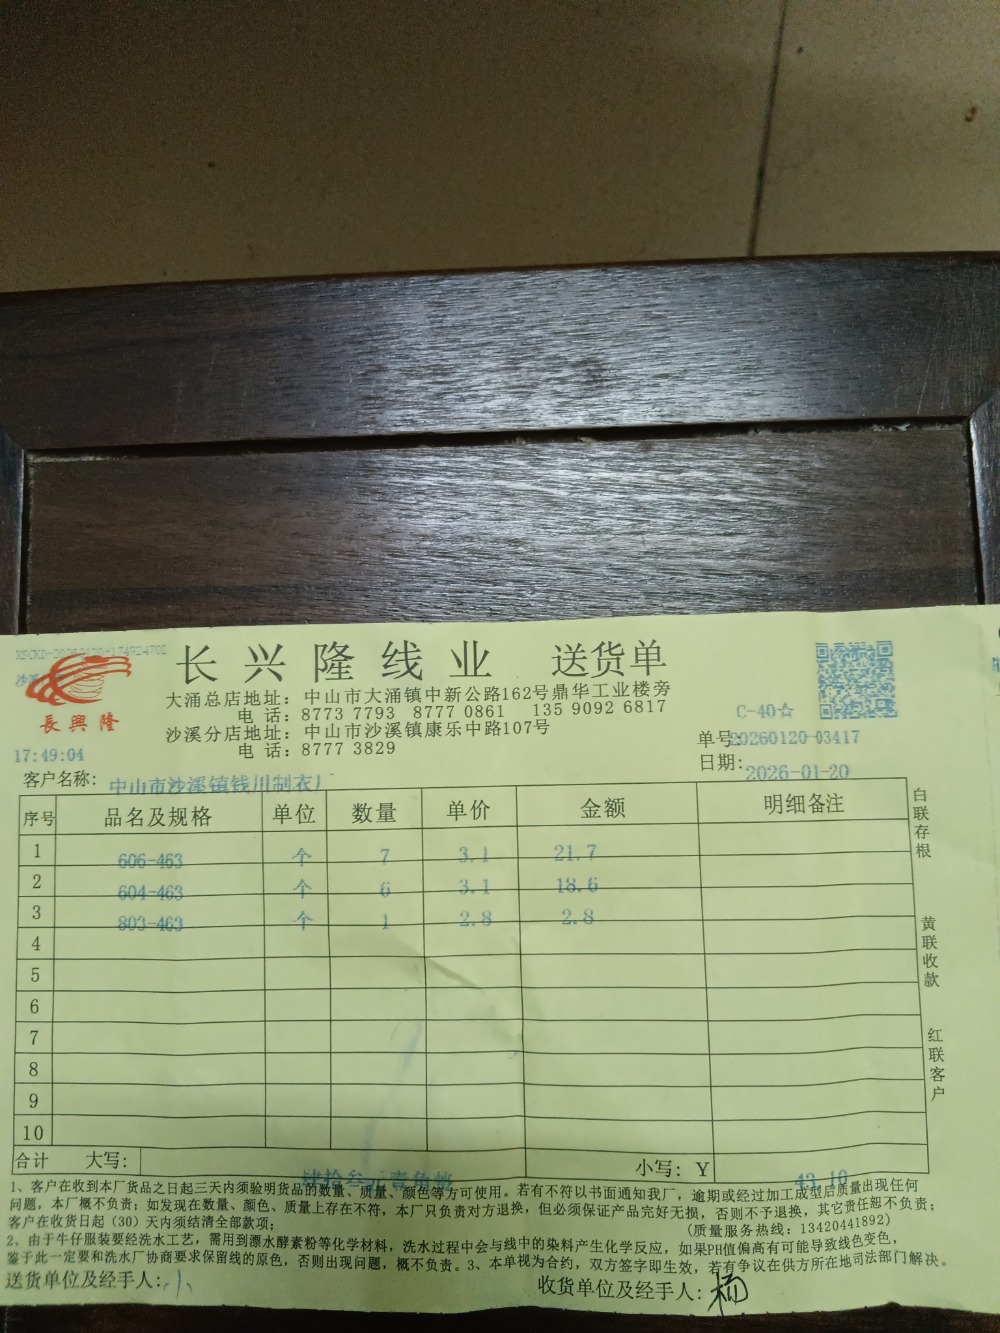 XSCKD-20260120-174924702
沙溪
長興隆
长兴隆线业 送货单
大涌总店地址：中山市大涌镇中新公路162号鼎华工业楼旁
电 话：8773 7793 8777 0861 135 9092 6817
沙溪分店地址：中山市沙溪镇康乐中路107号
电 话：8777 3829
C-40☆
单号：20260120-03417
17:49:04
日期：2026-01-20
客户名称：中山市沙溪镇钱川制衣厂
序号 品名及规格 单位 数量 单价 金额 明细备注
1 606-463 个 7 3.1 21.7
2 604-463 个 6 3.1 18.6
3 803-463 个 1 2.8 2.8
4
5
6
7
8
9
10
合计 大写：肆拾叁元壹角整 小写：Y 43.10
白联存根
黄联收款
红联客户
1、客户在收到本厂货品之日起三天内须验明货品的数量、质量、颜色等方可使用。若有不符以书面通知我厂，逾期或经过加工成型后质量出现任何
问题，本厂概不负责；如发现在数量、颜色、质量上存在不符，本厂只负责对方退换，但必须保证产品完好无损，否则不予退换，其它责任恕不负责；
客户在收货日起（30）天内须结清全部款项；
（质量服务热线：13420441892）
2、由于牛仔服装要经洗水工艺，需用到漂水酵素粉等化学材料，洗水过程中会与线中的染料产生化学反应，如果PH值偏高有可能导致线色变色，
鉴于此一定要和洗水厂协商要求保留线的原色，否则出现问题，概不负责。3、本单视为合约，双方签字即生效，若有争议在供方所在地司法部门解决。
送货单位及经手人：小
收货单位及经手人：杨